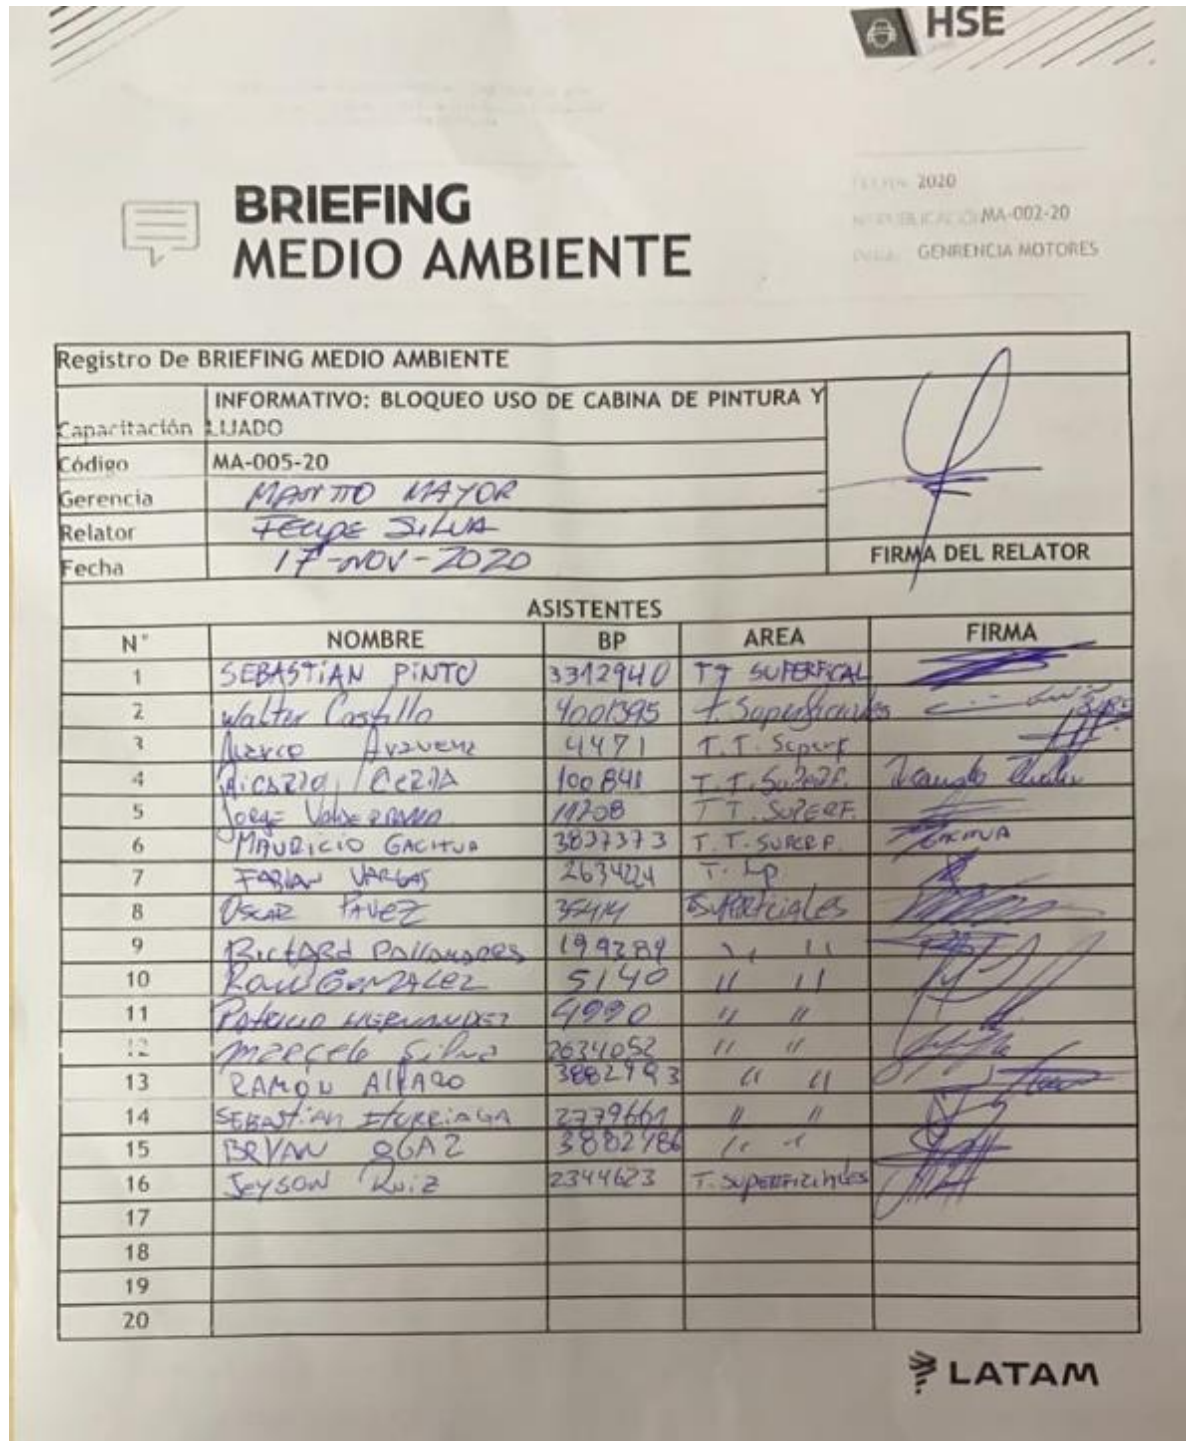 HSE
2020
MA-002-20
GENRENCIA MOTORES
BRIEFING
MEDIO AMBIENTE
Registro De BRIEFING MEDIO AMBIENTE
Capacitación INFORMATIVO: BLOQUEO USO DE CABINA DE PINTURA Y
LIJADO
Código MA-005-20
Gerencia MANTTO MAYOR
Relator FELIPE SILVA
Fecha 17-NOV-2020
FIRMA DEL RELATOR
ASISTENTES
N° NOMBRE BP AREA FIRMA
1 SEBASTIAN PINTO 3312940 TT SUPERFICAL
2 Walter Castillo 4001395 T. Superficiales
3 4471 T.T. Superf
4 Ricardo 100841 T.T. SUPERF.
5 Jorge Valderrama T T. SUPERF.
6 MAURICIO GACITUA 3837373 T. T. SUPERF. GACITUA
7 FABIAN VARGAS 2634224
8 OSCAR PAVEZ 35414 SUPERFICIALES
9 RICHARD 199289 " "
10 Raul GONZALEZ 5140 " "
11 Patricio HERNANDEZ 4990 " "
12 marcelo Silva 2634052 " "
13 RAMON ALFARO 3882993 " "
14 SEBASTIAN ITURRIAGA 2779661 " "
15 BRYAN OGAZ 3882786 " "
16 JEYSON Ruiz 2344623 T. SUPERFICIALES
17
18
19
20
LATAM